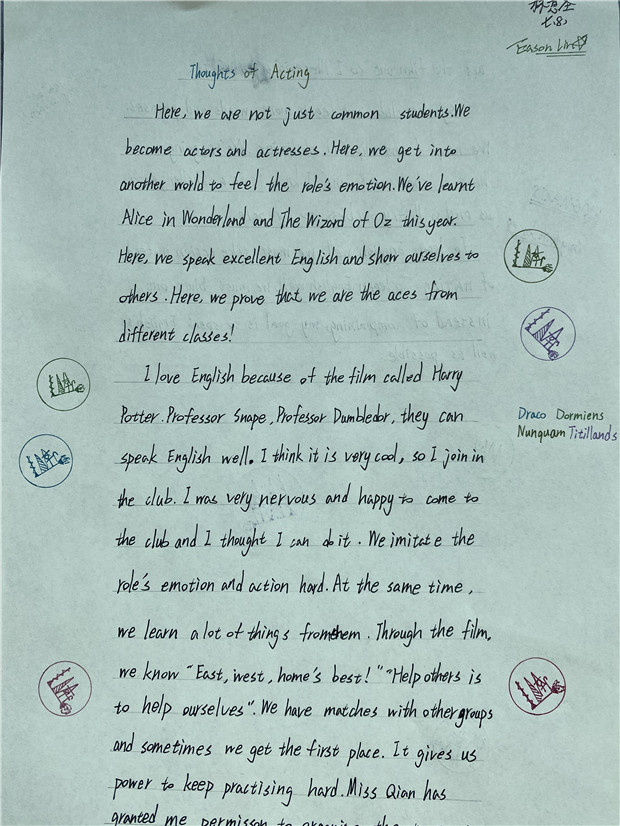 7.8)
Eason Lin
Thoughts of Acting
Here, we are not just common students.We
become actors and actresses. Here, we get into
another world to feel the role's emotion.We've learnt
Alice in Wonderland and The Wizard of Oz this year.
Here, we speak excellent English and show ourselves to
others. Here, we prove that we are the aces from
different classes!
I love English because of the film called Harry
Potter. Professor Snape, Professor Dumbledor, they can
speak English well. I think it is very cool, so I join in
the club. I was very nervous and happy to come to
the club and I thought I can do it. We imitate the
role's emotion and action hard. At the same time,
we learn a lot of things from them. Through the film,
we know "East, west, home's best!" "Help others is
to help ourselves". We have matches with other groups
and sometimes we get the first place. It gives us
power to keep practising hard. Miss Qian has
granted me permisson to
Draco Dormiens
Nunquam Titillands